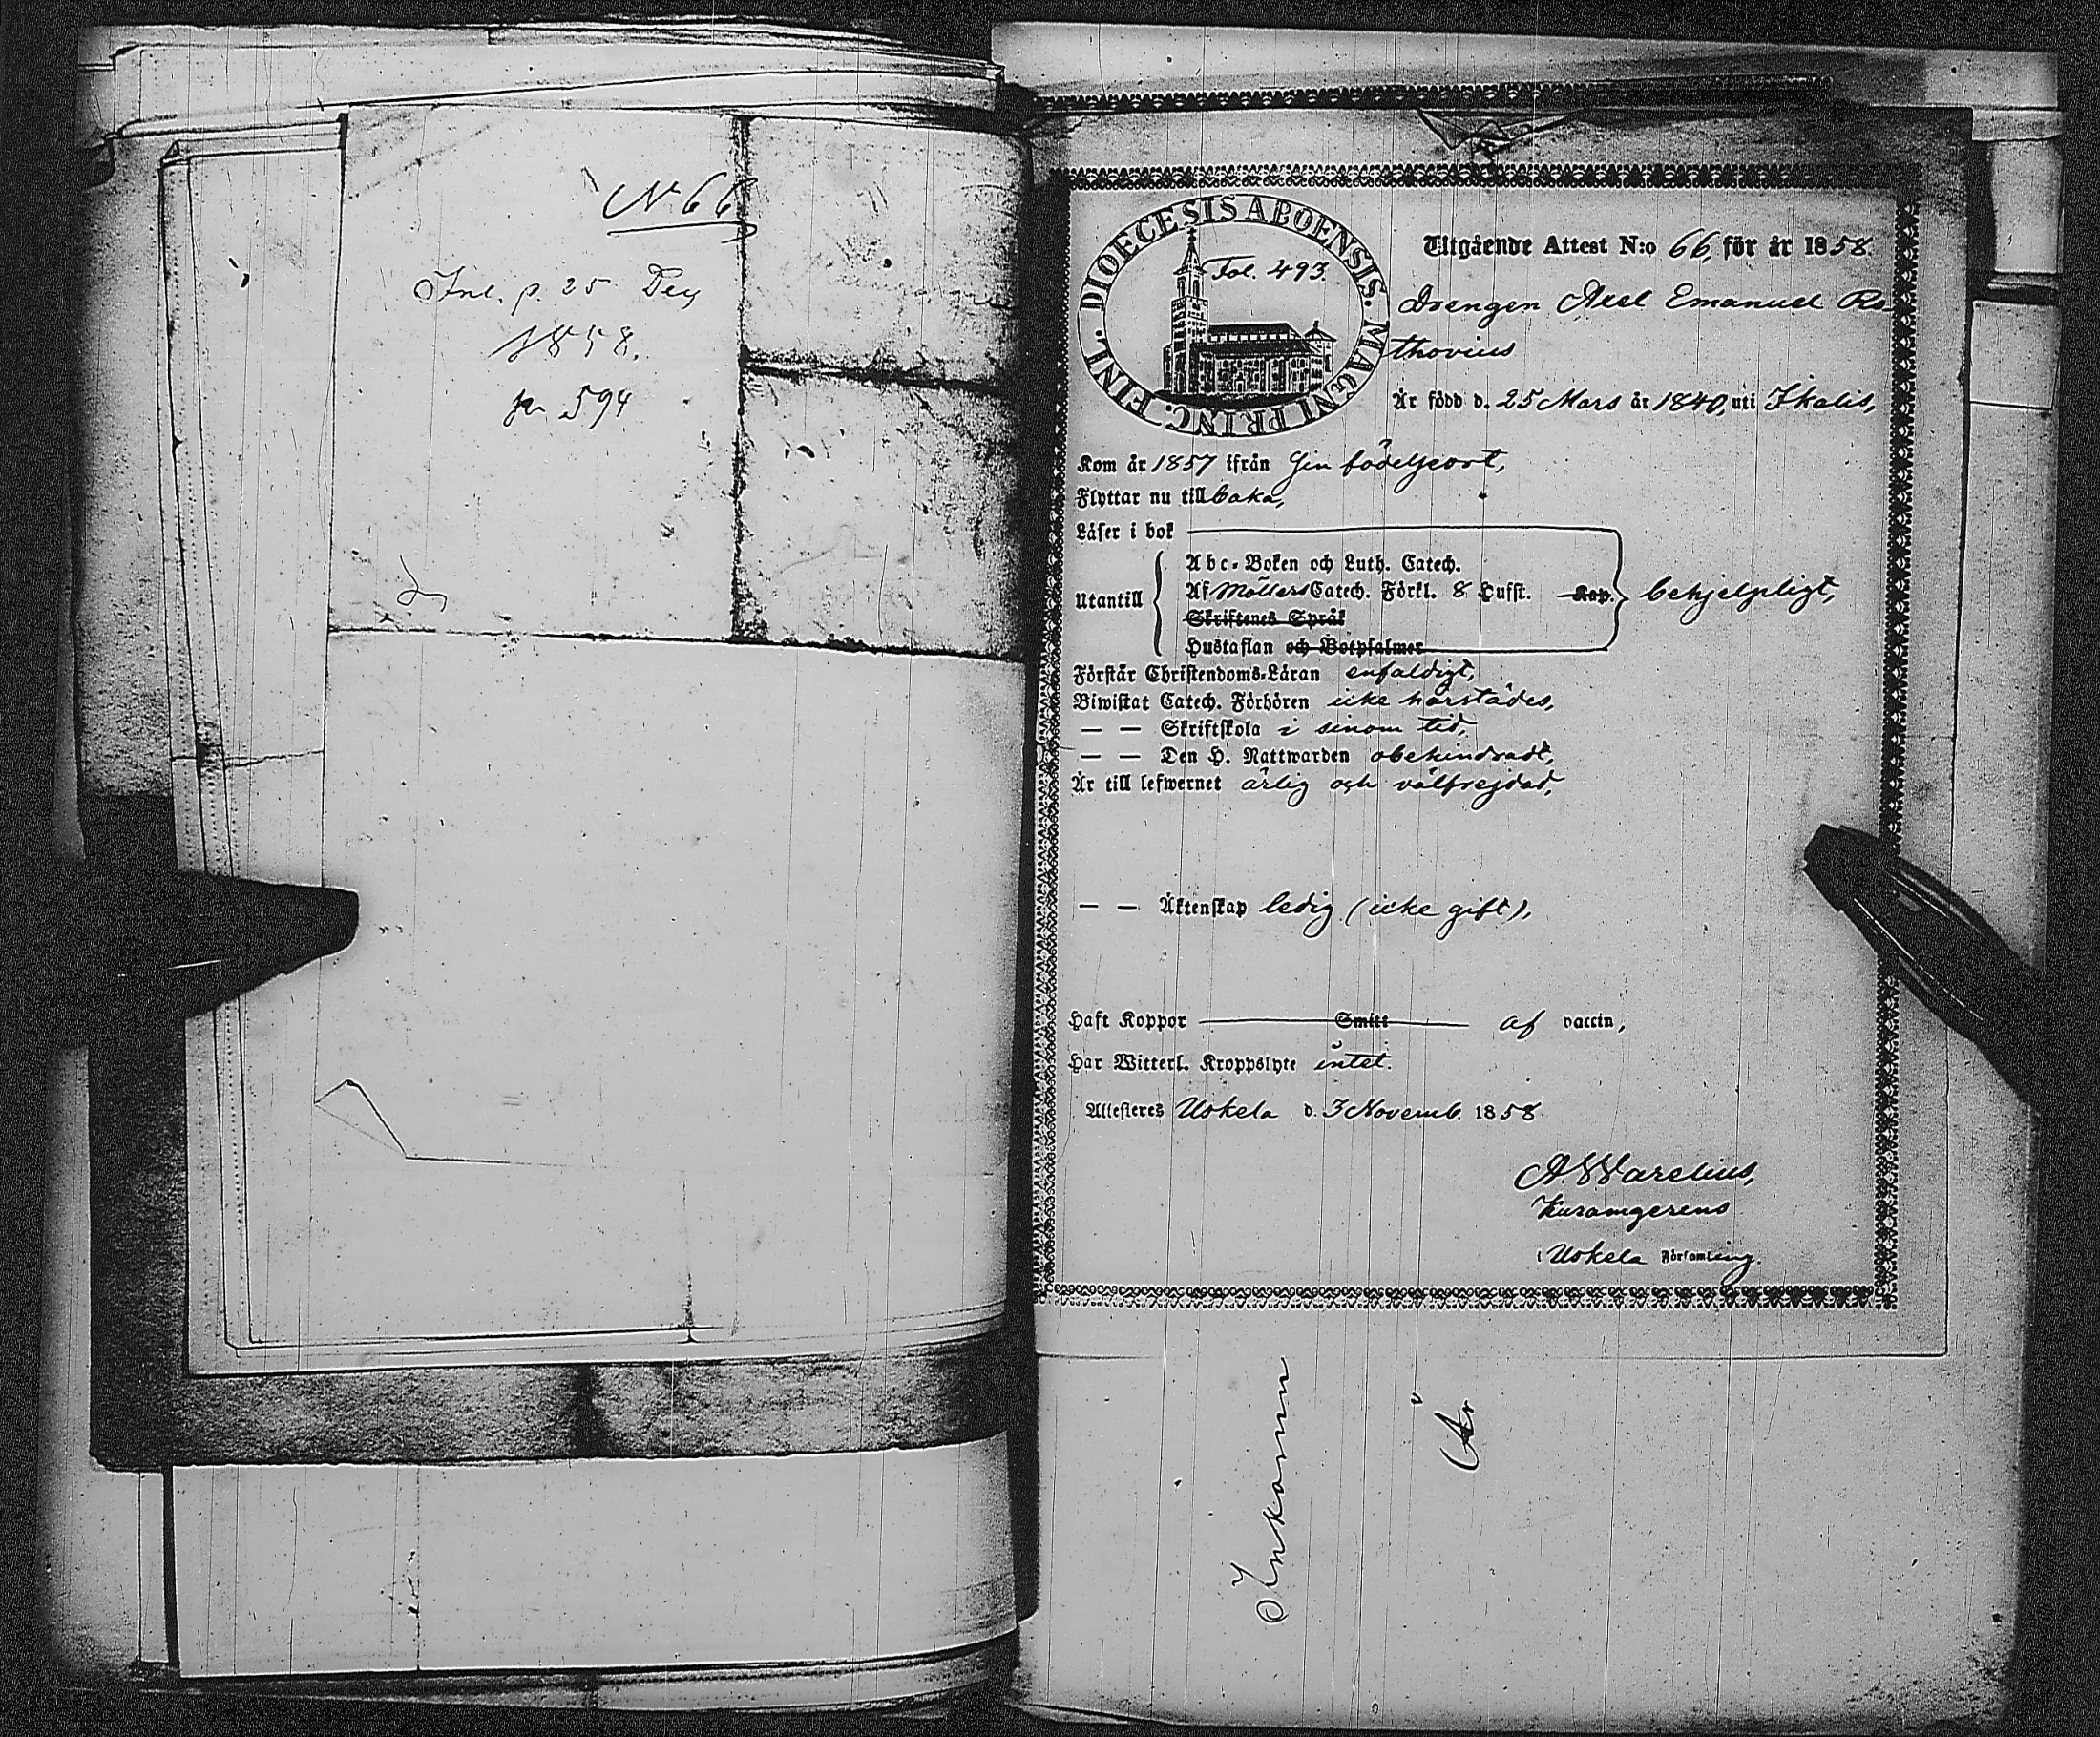 N 66
Inl. p. 25 Dec
1858.
p. 594
DIOECESIS ABOENSIS. MAGNI PRINC. FINL.
Fol. 493.
Utgående Attest N:o 66, för år 1858.
Drengen Axel Emanuel Ro-
thovius
Är född d. 25 Mars år 1840, uti Ikalis,
Kom år 1857 ifrån sin födelseort,
Flyttar nu tillbaka,
Läser i bok
Abc-Boken och Luth. Catech.
Utantill Af Möllers Catech. Förkl. 8 Hufst. Kap. behjelpligt,
Skriftenes Språk
Hustaflan och Botpsalmer
Förstår Christendoms-Läran enfaldigt,
Biwistat Catech. Förhören icke härstädes,
— — Skriftskola i sinom tid,
— — Den H. Nattwarden obehindradt,
Är till lefwernet ärlig och välfrejdad,
— — Äktenskap ledig (icke gift),
Haft Koppor Smitt af vaccin,
Har Witterl. Kroppslyte intet.
Attesteras Uskela d. 3 Novemb. 1858
A. Warelius,
i Uskela Församling.
Inkomn
År